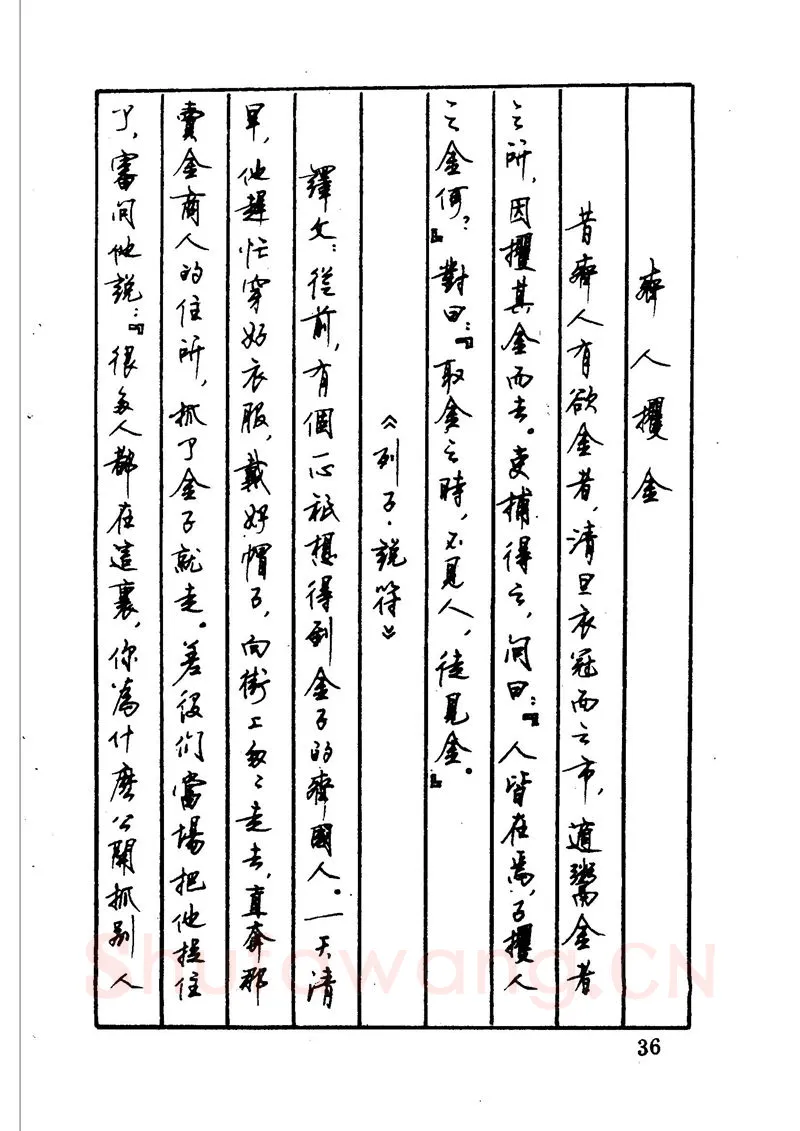 齊人攫金
昔齊人有欲金者,清旦衣冠而之市,適鬻金者
之所,因攫其金而去。吏捕得之,問曰:『人皆在焉,子攫人
之金何?』對曰:『取金之時,不見人,徒見金。』
《列子·說符》
譯文:從前,有個一心祇想得到金子的齊國人。一天清
早,他趕忙穿好衣服,戴好帽子,向街上匆匆走去,直奔那
賣金商人的住所,抓了金子就走。差役們當場把他捉住
了,審問他說:『很多人都在這裏,你為什麼公開抓別人
36
Shufawang.CN